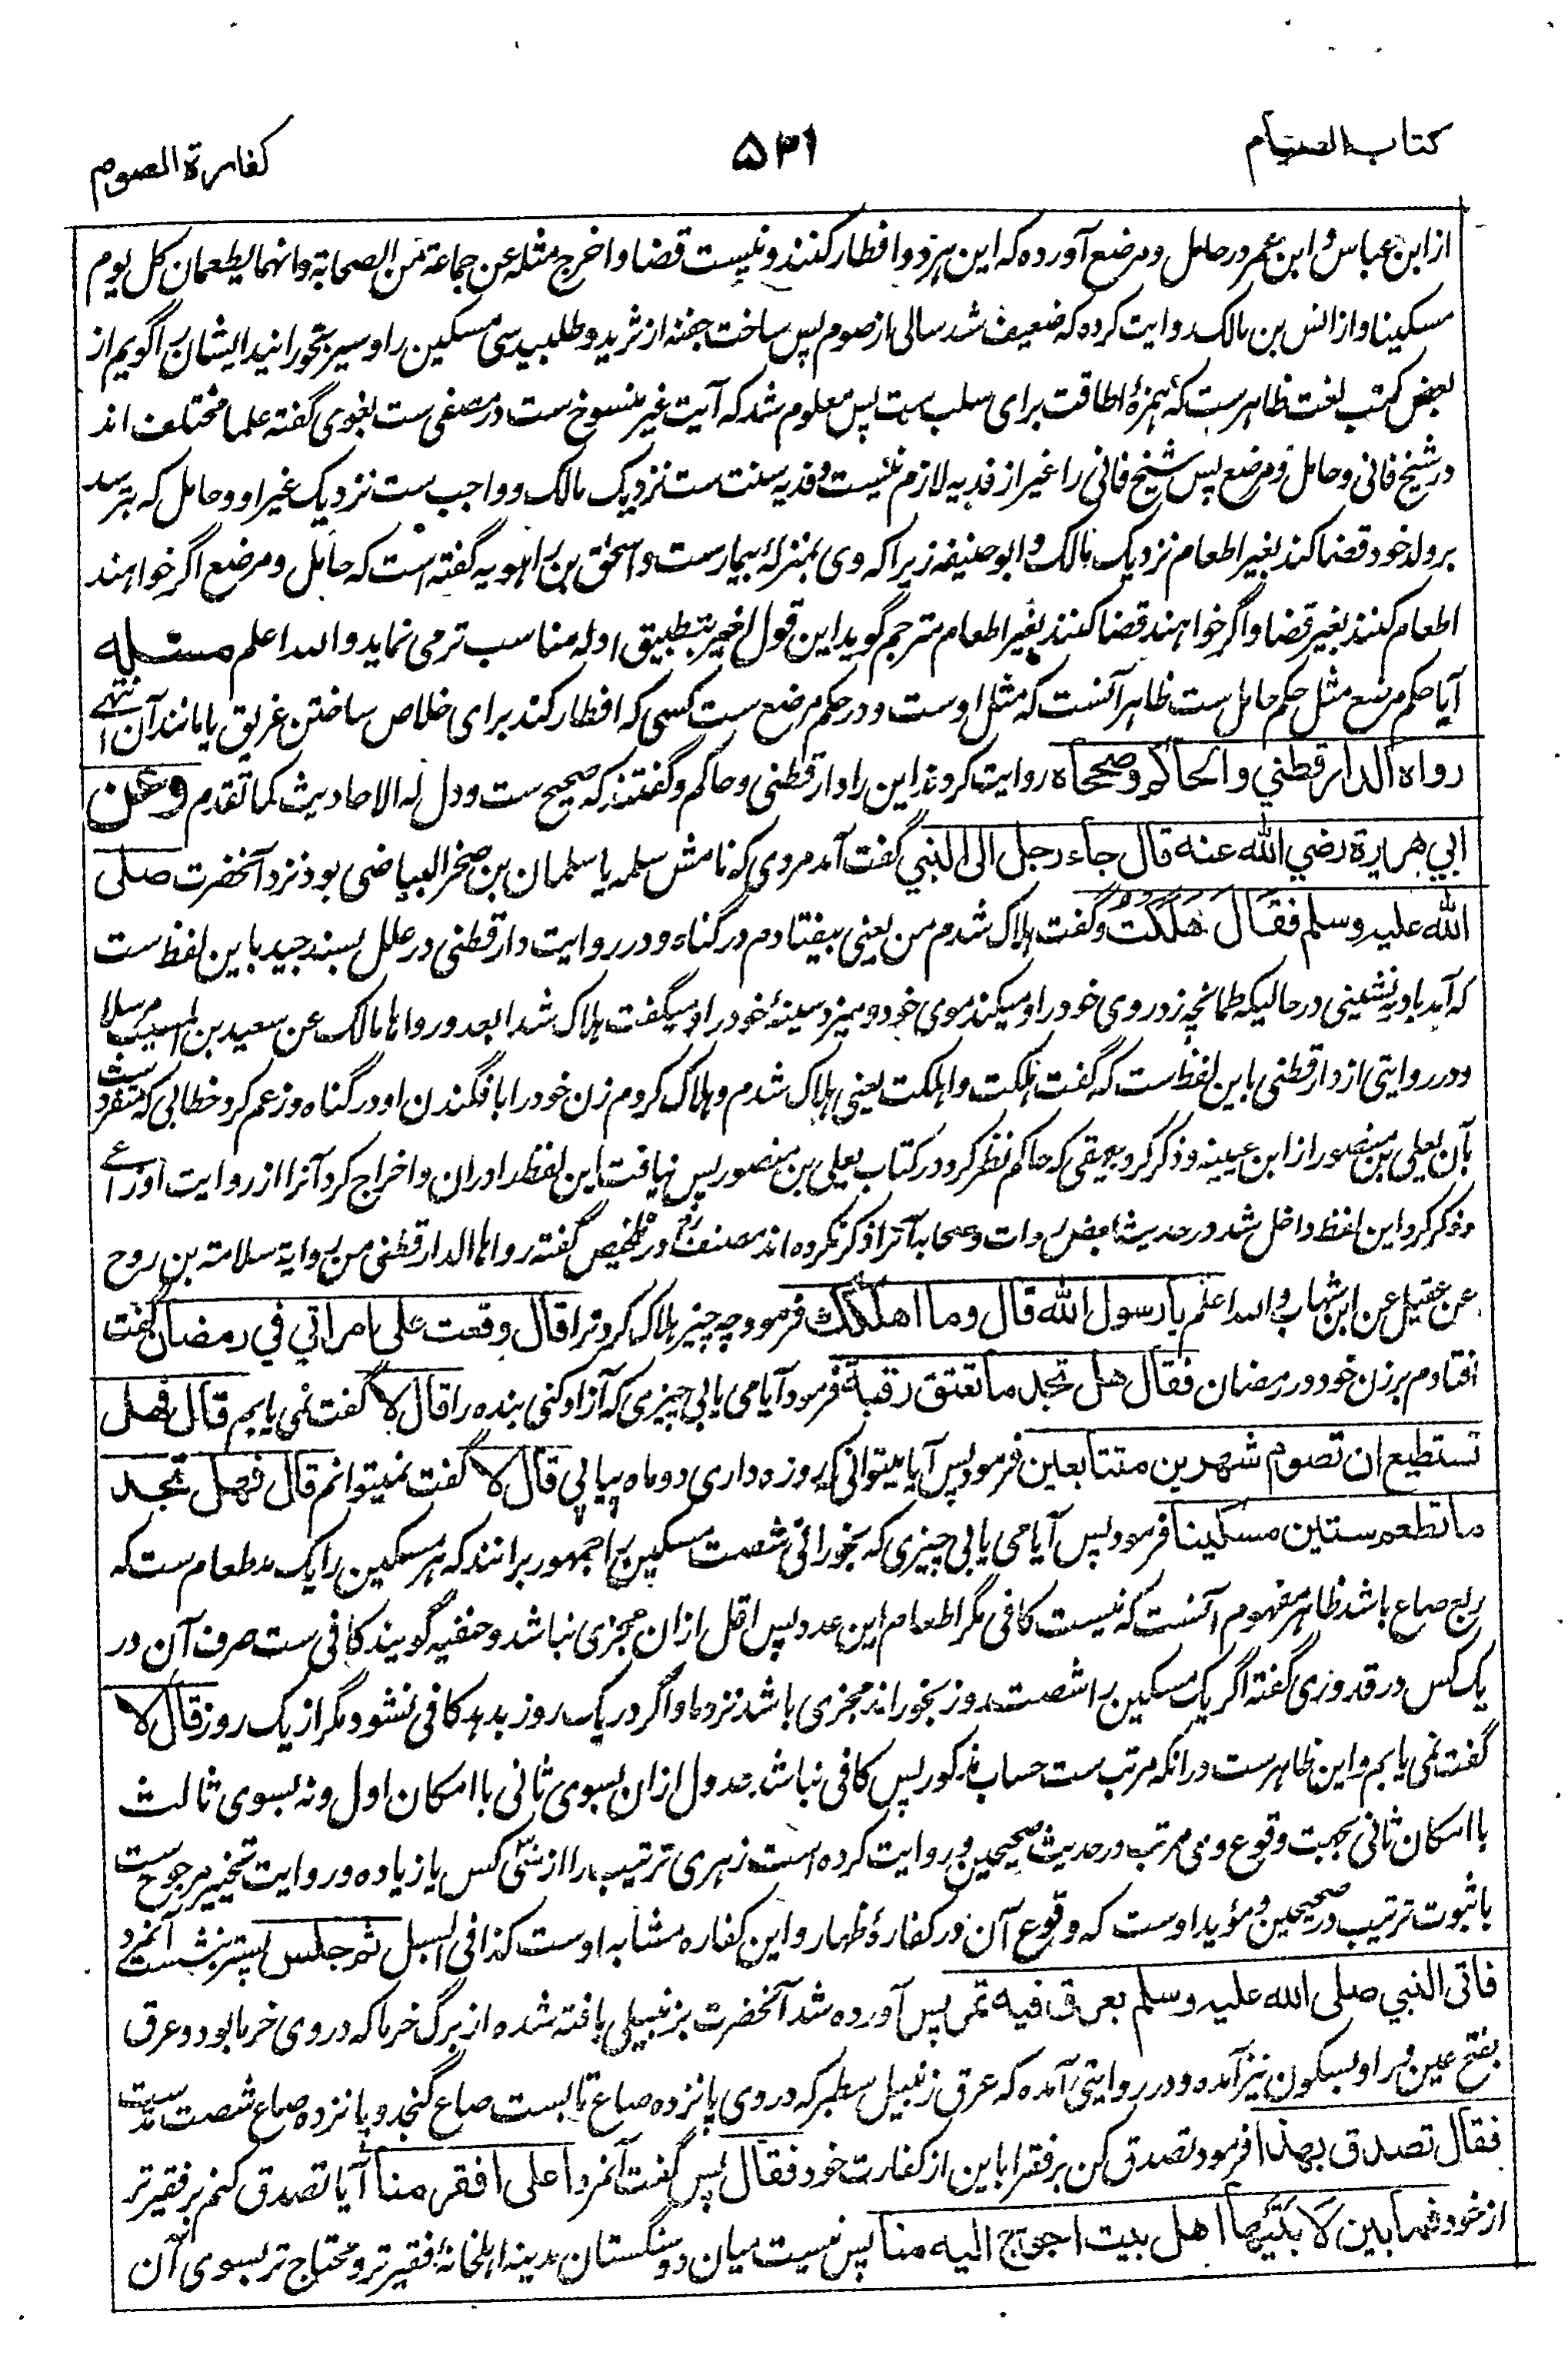 کتاب الصیام
۵۳۱
کفارة الصوم
از ابن عباس و ابن عمر در حامل و مرضع آورده که این هر دو افطار کنند و نیست قضا و اخرج مثله عن جماعة من الصحابة و انهما یطعمان کل یوم
مسکینا و از انس بن مالک روایت کرده که ضعیف شد سالی از صوم پس ساخت جفنه از ثرید و طلبید سی مسکین را و سیر بخورانید ایشان را گویم از
بعض کتب لغت ظاهرست که همزهٔ اطاقت برای سلب ست پس معلوم شد که آیت غیر منسوخ ست در مصفی ست بغوی گفته علما مختلف اند
در شیخ فانی و حامل و مرضع پس شیخ فانی را غیر از فدیه لازم نیست و فدیه سنت ست نزدیک مالک و واجب ست نزدیک غیر او و حامل که بترسد
بر ولد خود قضا کند بغیر اطعام نزدیک مالک و ابو حنیفه زیرا که وی بمنزلهٔ بیمارست و اسحٰق بن راهویه گفته است که حامل و مرضع اگر خواهند
اطعام کنند بغیر قضا و اگر خواهند قضا کنند بغیر اطعام مترجم گوید این قول اخیر بتطبیق ادله مناسب تر می نماید و الله اعلم مسئله
آیا حکم مرضع مثل حکم حامل ست ظاهر آنست که مثل اوست و در حکم مرضع ست کسی که افطار کند برای خلاص ساختن غریق یا مانند آن انتهے
رواه الدارقطني والحاكم وصححاه روایت کردند این را دارقطنی و حاکم و گفتند که صحیح ست و دل له الاحادیث کما تقدم وعن
ابي هريرة رضي الله عنه قال جاء رجل الى النبي گفت آمد مردی که نامش سلمه یا سلمان بن صخر البیاضی بود نزد آنحضرت صلی
الله عليه وسلم فقال هَلَكْتُ و گفت هلاک شدم من یعنی بیفتادم در گناه و در روایت دارقطنی در علل بسند جید باین لفظ ست
که آمد بادیه نشینی در حالیکه طمانچه زد روی خود را و میکند موی خود و میزد سینهٔ خود را و میگفت هلاک شد ابعد و رواها مالک عن سعید بن المسیب مرسلا
و در روایتی از دارقطنی باین لفظ ست که گفت هلکت و اهلکت یعنی هلاک شدم و هلاک کردم زن خود را با فگندن او در گناه و زعم کرد خطابی که متفرد ست
بآن یعلی بن منصور از ابن عیینه و ذکر کرد بیهقی که حاکم نظر کرد در کتاب یعلی بن منصور پس نیافت این لفظ را دران و اخراج کرد آنرا از روایت اوزاعے
و ذکر کرد این لفظ داخل شد در حدیث بعض روات و صحابه آنرا ذکر نکرده اند مصنف در تلخیص گفته رواها الدارقطنی من روایة سلامة بن روح
عن عقیل عن ابن شهاب و الله اعلم يا رسول الله قال وما اهلكك فرمود چه چیز هلاک کرد ترا قال وقعت على امراتي في رمضان گفت
افتادم بر زن خود در رمضان فقال هل تجد ما تعتق رقبة فرمود آیا می یابی چیزی که آزاد کنی بنده را قال لا گفت نمی یابم قال فهل
تستطيع ان تصوم شهرين متتابعين فرمود پس آیا میتوانی که روزه داری دو ماه پیاپی قال لا گفت نمیتوانم قال فهل تجد
ما تطعم ستين مسكينا فرمود پس آیا می یابی چیزی که بخورانی شصت مسکین را جمهور برانند که هر مسکین را یک مد طعام ست که
ربع صاع باشد ظاهر مفهوم آنست که نیست کافی مگر اطعام این عدد پس اقل ازان مجزی نباشد و حنفیه گویند کافی ست صرف آن در
یک کس در قدوری گفته اگر یک مسکین را شصت روز بخوراند مجزی باشد نزد ما و اگر در یک روز بدهد کافی نشود مگر از یک روز قال لا
گفت نمی یابم و این ظاهرست درانکه مرتب ست حساب مذکور پس کافی نباشد عدول ازان بسوی ثانی با امکان اول و نه بسوی ثالث
با امکان ثانی بجهت وقوع وی مرتب در حدیث صحیحین و روایت کرده است زهری ترتیب را از سی کس یا زیاده و روایت تخییر مرجوح ست
با ثبوت ترتیب در صحیحین و مؤید اوست که وقوع آن در کفارهٔ ظهار و این کفاره مشابه اوست کذا فی السبل ثم جلس پستر نشست آنمرد
فاتى النبي صلى الله عليه وسلم بعرق فيه تمر پس آورده شد آنحضرت بزنبیلی بافته شده از برگ خرما که در وی خرما بود و عرق
بفتح عین و را و بسکون نیز آمده و در روایتی آمده که عرق زنبیل سطبر که در وی پانزده صاع تا بست صاع گنجد و پانزده صاع شصت مد ست
فقال تصدق بهذا فرمود تصدق کن بر فقرا باین از کفارت خود فقال پس گفت آنمرد اعلى افقر منا آیا تصدق کنم بر فقیر تر
از خود فما بين لَابَتَيْهَا اهل بيت احوج اليه منا پس نیست میان دو سنگستان مدینه اهلخانهٔ فقیر تر و محتاج تر بسوی آن